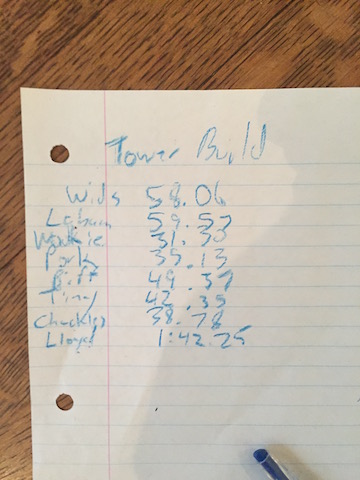 Tower Build
Wids 58.06
59.53
Wookie 31.33
Pork 35.13
49.37
Tiny 42.35
Chuckles 38.78
Lloyd 1:42.25